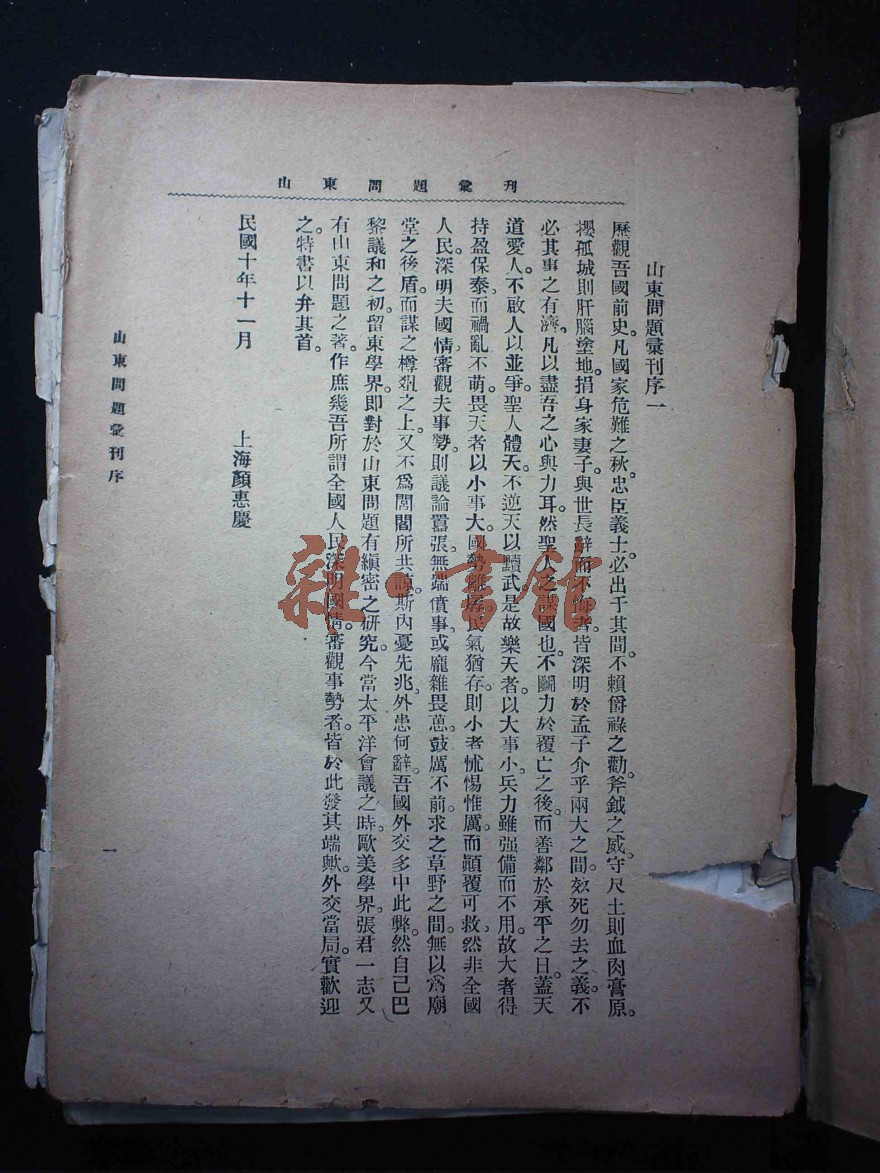 山東問題彙刊
山東問題彙刊序一
歷觀吾國前史。凡國家危難之秋。忠臣義士。必出于其間。不賴爵祿之勸。斧鉞之威。守尺土則血肉膏原。
攖孤城則肝腦塗地。捐身家妻子。與世長辭而不悔者。皆深明於孟子介乎兩大之間。效死勿去之義。不
必其事之有濟。凡以盡吾之心與力耳。然聖人之謀國也。不鬭力於覆亡之後。而善鄰於承平之日。蓋天
道愛人。不啟人以並爭。聖人體天。不逆天以黷武。是故樂天者。以大事小。兵力雖强備而不用。故大者得
持盈保泰。而禍亂不萌。畏天者以小事大。國勢雖孱。民氣猶存。則小者怵惕惟厲。而顚覆可救。然非全國
人民。深明夫國情。審觀夫事勢。則議論囂張。無端僨事。或龐雜畏葸。鼓厲不前。求之草野之間。無以爲廟
堂之後盾。而謀之樽俎之上。又不爲閭閻所共諒。斯內憂先兆。外患何辭。吾國外交多中此弊。然自己巴
黎議和之初。留東學界。即對於山東問題有縝密之研究。今當太平洋會議之時。歐美學界。張君一志又
有山東問題之著。作庶幾吾所謂全國人民深明國情。審觀事勢者。皆於此發其端歟。外交當局。實歡迎
之。特書以弁其首。
民國十年十一月 上海顏惠慶
山東問題彙刊序
一
雜·書館